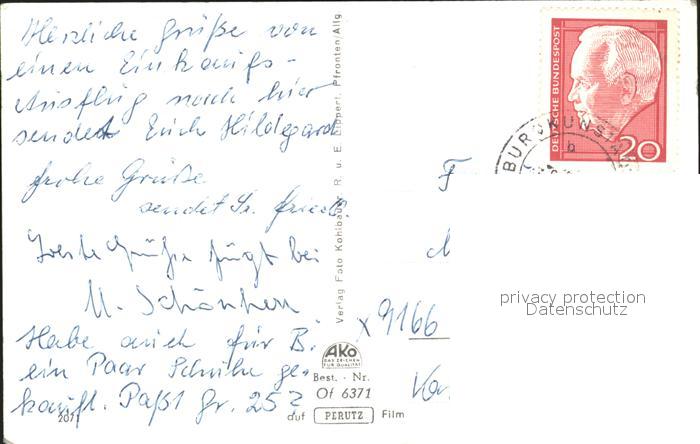 Herzliche Grüße von
einen Einkaufs-
Ausflug nach hier
sendet Euch Hildegard
frohe Grüße
sendet Sr.
Grüße fügt bei
M.
Habe auch für B.
ein Paar Schuhe ge-
kauft. Paßt Gr. 25?
2071
Verlag Foto Kohlbauer, R. u. E. Lippert, Pfronten/Allg
AKO
DAS ZEICHEN
FÜR QUALITÄT
Best. - Nr.
Of 6371
auf PERUTZ Film
DEUTSCHE BUNDESPOST
20
BURGKUNST
b
F
x 9166
privacy protection
Datenschutz